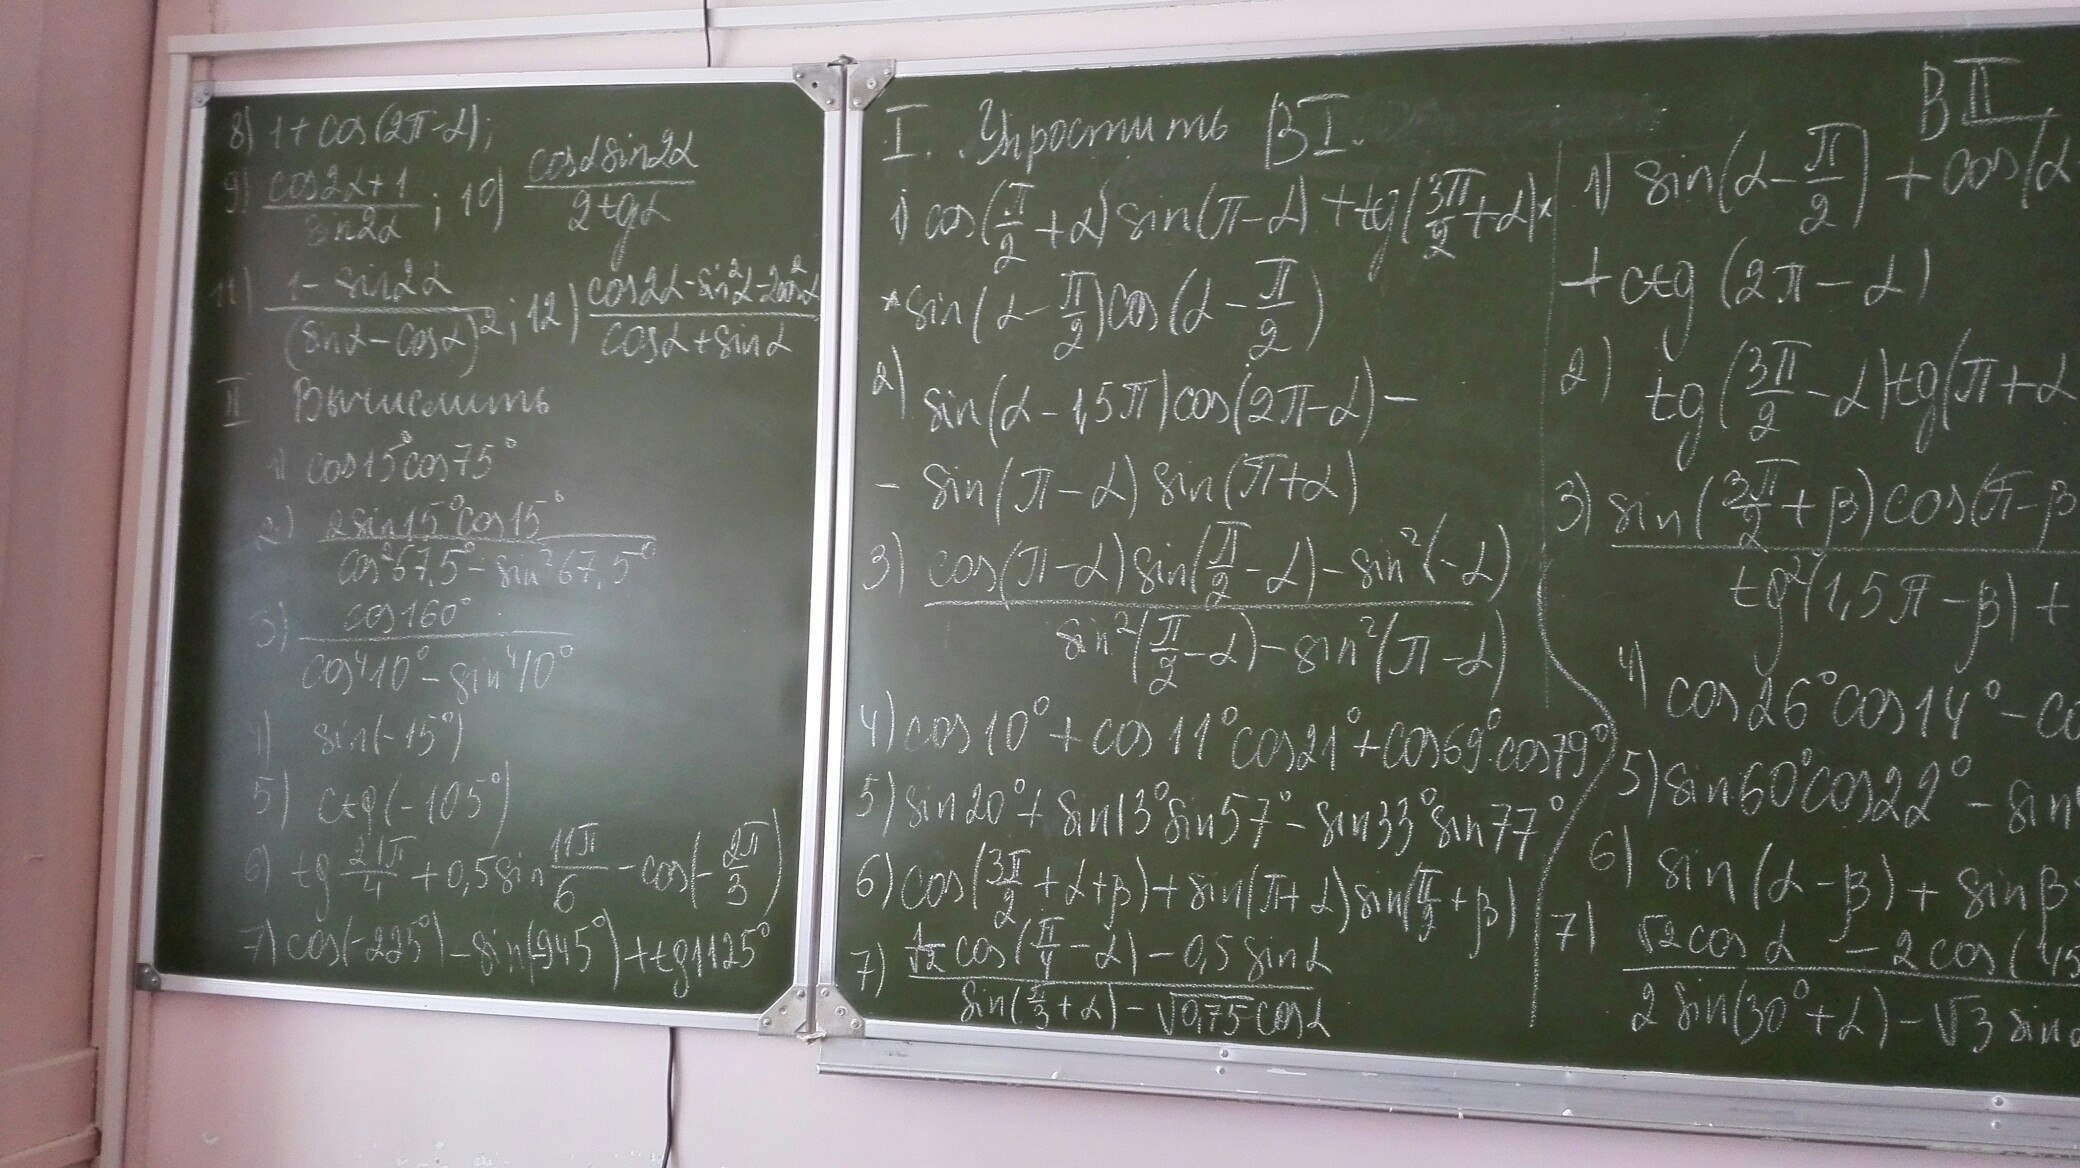 8) 1+cos(2π-α);
9) (cos2α+1)/(sin2α); 10) (cosα sin2α)/(2tgα)
11) (1-sin2α)/(sinα-cosα)²; 12) (cos2α-sin²α-2cos²α)/(cosα+sinα)
II Вычислить
1) cos15°cos75°
2) (2sin15°cos15°)/(cos²67,5°-sin²67,5°)
3) (cos160°)/(cos⁴10°-sin⁴10°)
4) sin(-15°)
5) ctg(-105°)
6) tg 21π/4 + 0,5sin 11π/6 - cos(-2π/3)
7) cos(-225°)-sin(-945°)+tg1125°
I. Упростить ВI.
1) cos(π/2+α)sin(π-α)+tg(3π/2+α)×
×sin(α-π/2)cos(α-π/2)
2) sin(α-1,5π)cos(2π-α)-
-sin(π-α)sin(π+α)
3) (cos(π-α)sin(π/2-α)-sin²(-α))/(sin²(π/2-α)-sin²(π-α))
4) cos10°+cos11°cos21°+cos69°cos79°
5) sin20°+sin13°sin57°-sin33°sin77°
6) cos(3π/2+α+β)+sin(π+α)sin(π/2+β)
7) (cos(π/4-α)-0,5sinα)/(sin(π/3+α)-√0,75cosα)
ВII
1) sin(α-π/2)+cos(α-
+ctg(2π-α)
2) tg(3π/2-α)tg(π+α
3) sin(3π/2+β)cos(π-β
tg²(1,5π-β)+
4) cos26°cos14°-co
5) sin60°cos22°-sin
6) sin(α-β)+sinβ
7) √2cosα-2cos(45
2sin(30°+α)-√3sinα